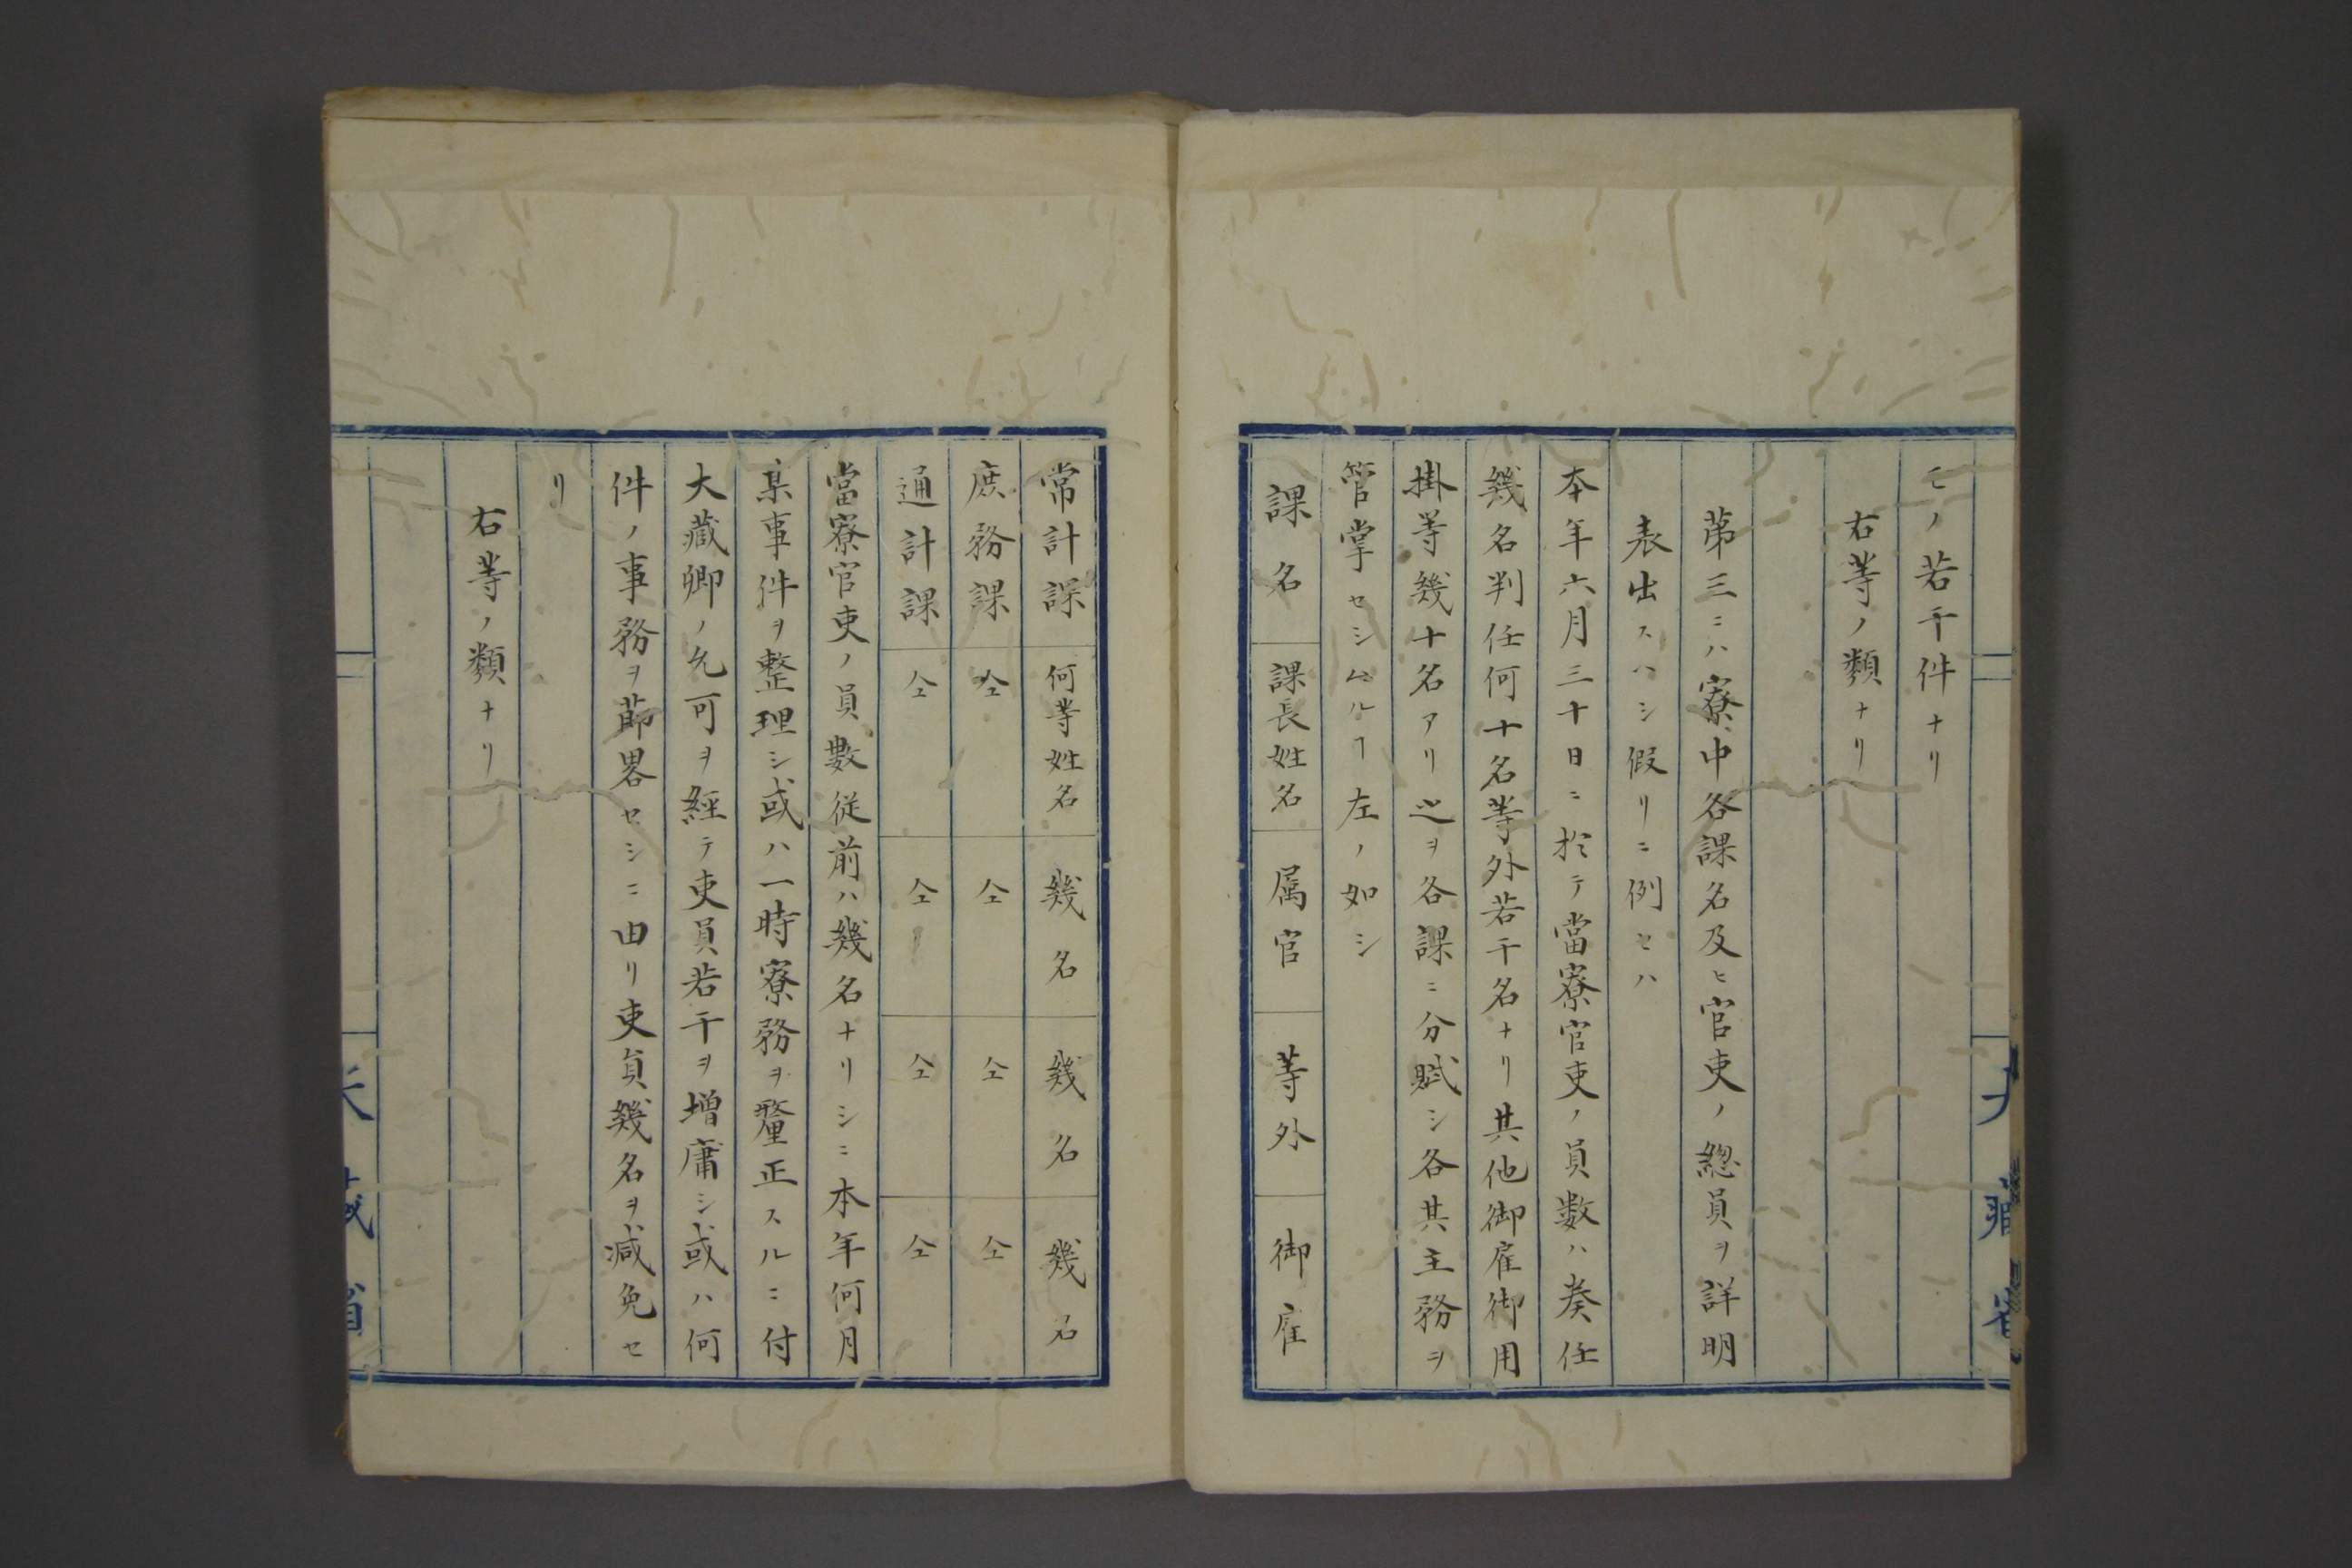 モノ若干件ナリ
右等ノ類ナリ
第三ニハ寮中各課名及ヒ官吏ノ總員ヲ詳明
表出スヘシ假リニ例セハ
本年六月三十日ニ於テ當寮官吏ノ員数ハ奏任
幾名判任何十名等外若干名ナリ其他御雇御用
掛等幾十名アリ之ヲ各課ニ分賦シ各其主務ヲ
管掌セシムルヿ左ノ如シ
課名 課長姓名 属官 等外 御雇
大藏省
常計課 何等姓名 幾名 幾名 幾名
庶務課 仝 仝 仝 仝
通計課 仝 仝 仝 仝
當寮官吏ノ員數従前ハ幾名ナリシニ本年何月
某事件ヲ整理シ或ハ一時寮務ヲ釐正スルニ付
大藏卿ノ允可ヲ經テ吏員若干ヲ増庸シ或ハ何
件ノ事務ヲ莭畧セシニ由リ吏員幾名ヲ減免セ
リ
右等ノ類ナリ
大藏省